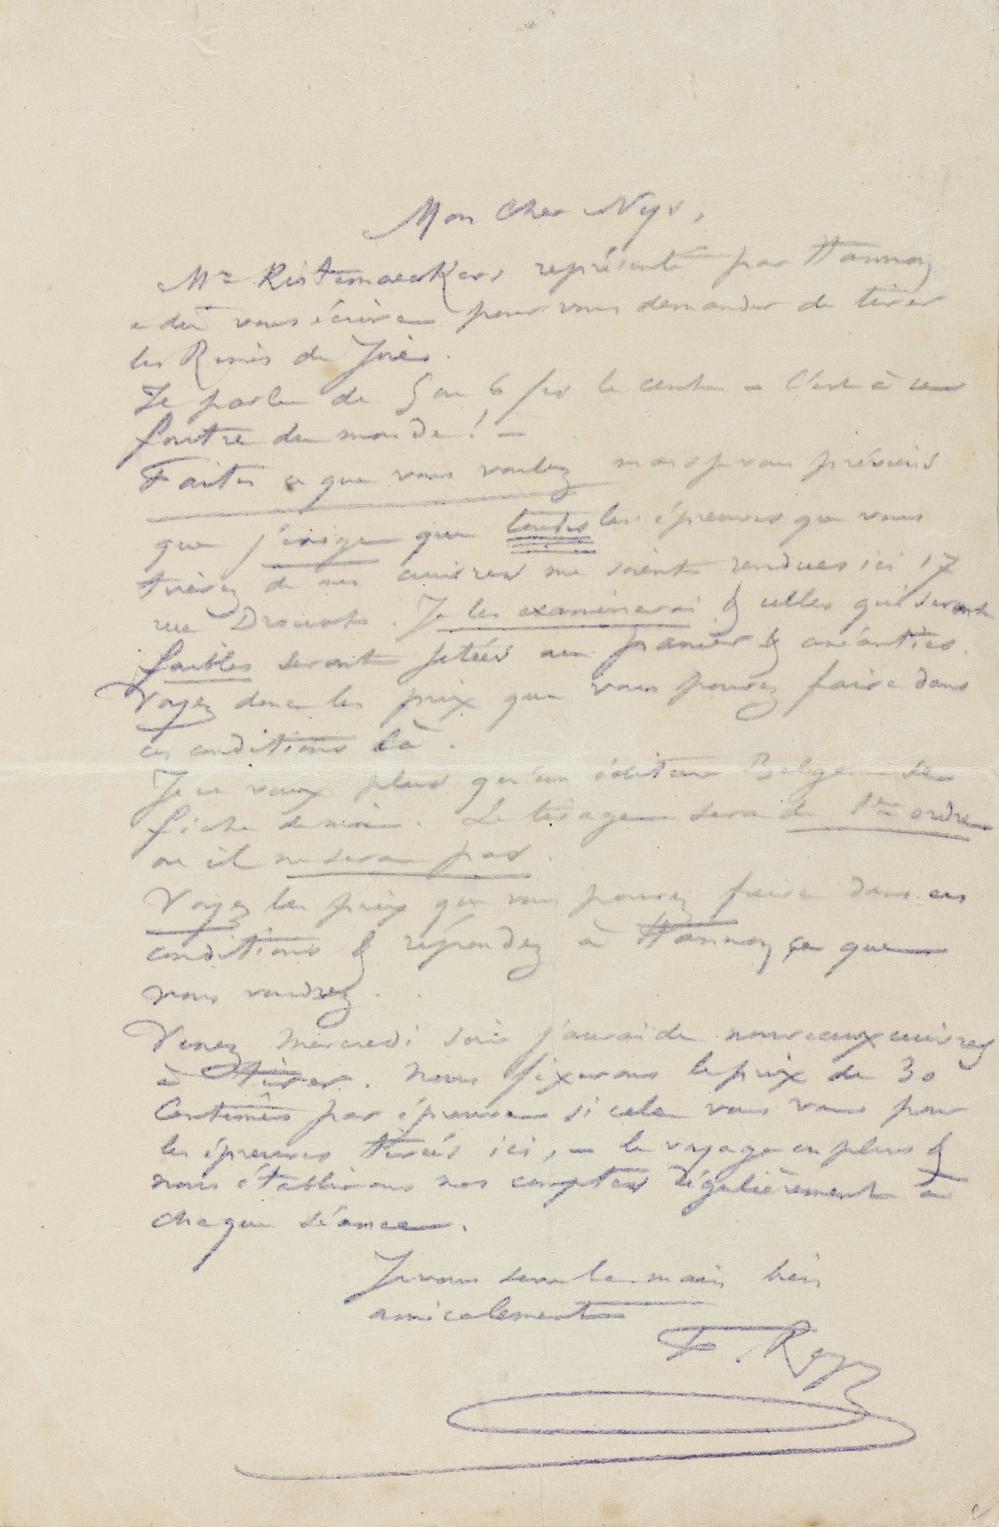 Mon cher Nys,
Mr Kistemaeckers représenté par Hannon
a dû vous écrire pour vous demander de tirer
les Rimes de Joie.
Il parle de 5 ou 6 frs le cent – c'est à se
foutre du monde! –
Faites ce que vous voulez mais je vous préviens
que j'exige que toutes les épreuves que vous
tirerez de mes cuivres me soient rendues ici 17
rue Drouot. Je les examinerai & celles qui seront
faibles seront jetées au panier & anéanties.
Voyez donc les prix que vous pouvez faire dans
ces conditions là.
Je ne veux plus qu'un éditeur Belge se
fiche de moi. Le tirage sera de 1er ordre
ou il ne sera pas.
Voyez les prix que vous pouvez faire dans ces
conditions & répondez à Hannon ce que
vous voudrez.
Venez mercredi soir j'aurai de nouveaux cuivres
à tirer. Nous fixerons le prix de 30
centimes par épreuve si cela vous va pour
les épreuves tirées ici, – le voyage en plus &
nous établirons nos comptes régulièrement à
chaque séance.
Je vous serre la main bien
amicalement
F. Rops